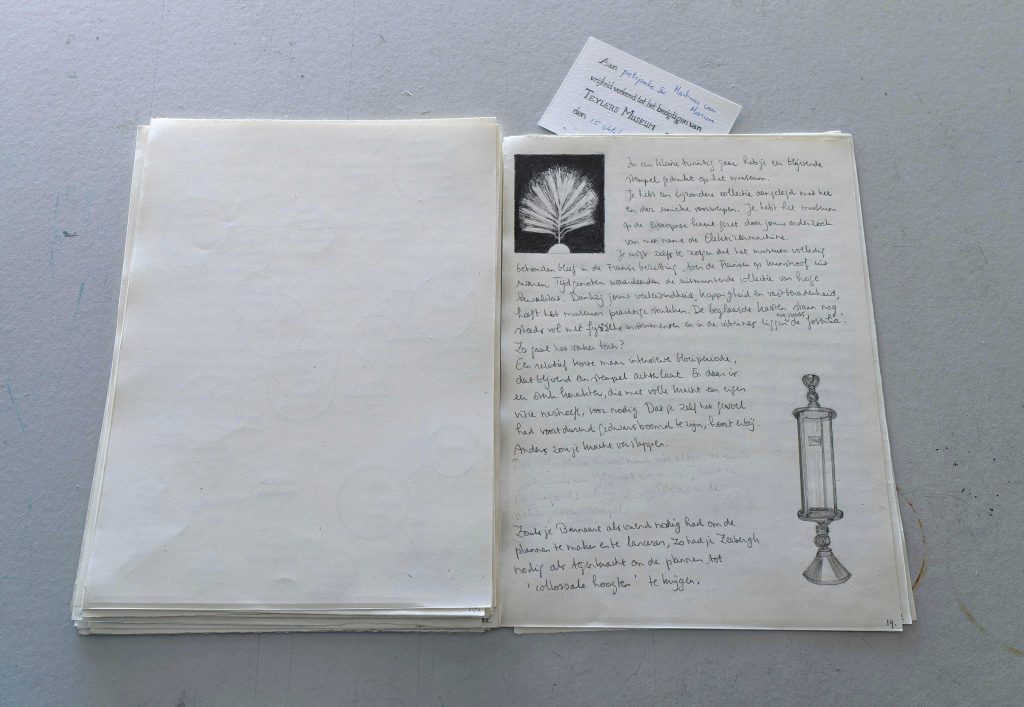 Aan pietsjanke & Martinus van Marum
vrijheid verleend tot het bezigtigen van
TEYLERS MUSEUM
den 15 okt
In een kleine twintig jaar heb je een blijvende
stempel gedrukt op het museum.
Je hebt een bijzondere collectie aangelegd met het
en der unieke voorwerpen. Je hebt het museum
op de Europese kaart gezet door jouw onderzoek
van met name de Elektrizeermachine.
Je wist zelfs te zorgen dat het museum volledig
behouden bleef in de Franse bezetting, toen de Fransen op kunstroof uit
waren. Tijdgenoten waardeerden de uitmuntende collectie van hoge
kwaliteit. Dankzij jouw verwaandheid, happigheid en vastberadenheid,
heeft het museum prachtige stukken. De beglaasde kasten staan nog
steeds vol met fysische instrumenten en in de vitrines liggen nog steeds de 'fossilia'.
Zo gaat het vaker toch?
Een relatief korte maar intensieve bloeiperiode,
dat blijvend een stempel achterlaat. En daar is
een sterk karakter, die met volle kracht een eigen
visie nastreeft, voor nodig. Dat je zelf het gevoel
had voortdurend gedwarsboomd te zijn, hoort erbij.
Anders zou je kracht verslappen.
Zoals je Barnaart als vriend nodig had om de
plannen te maken en te lanceren, zo had je Zeebergh
nodig als tegenkracht om de plannen tot
'collossale hoogten' te krijgen.
19.